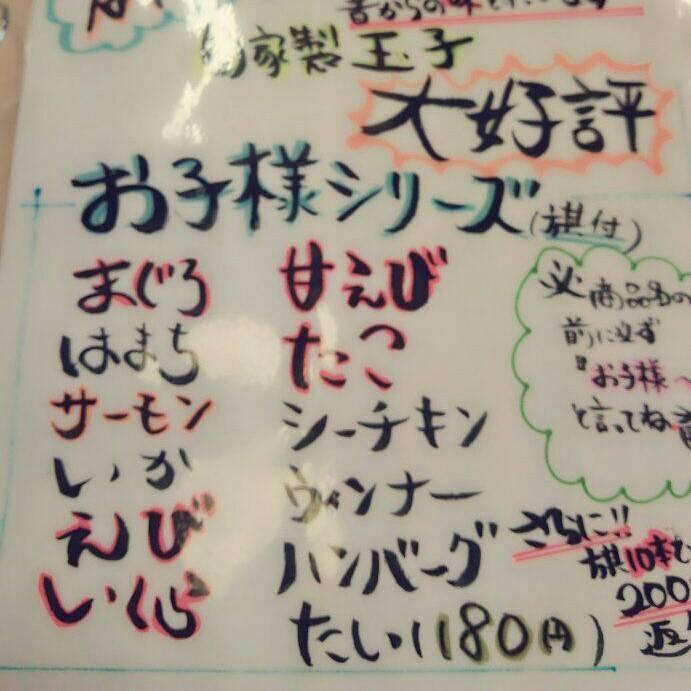 昔からの味
自家製玉子
大好評
お子様シリーズ(旗付)
まぐろ
はまち
サーモン
いか
えび
いくら
甘えび
たこ
シーチキン
ウィンナー
ハンバーグ
たい(180円)
商品名の
前に必ず
『お子様～
と言ってね
さらに!!
旗10本で
200
返